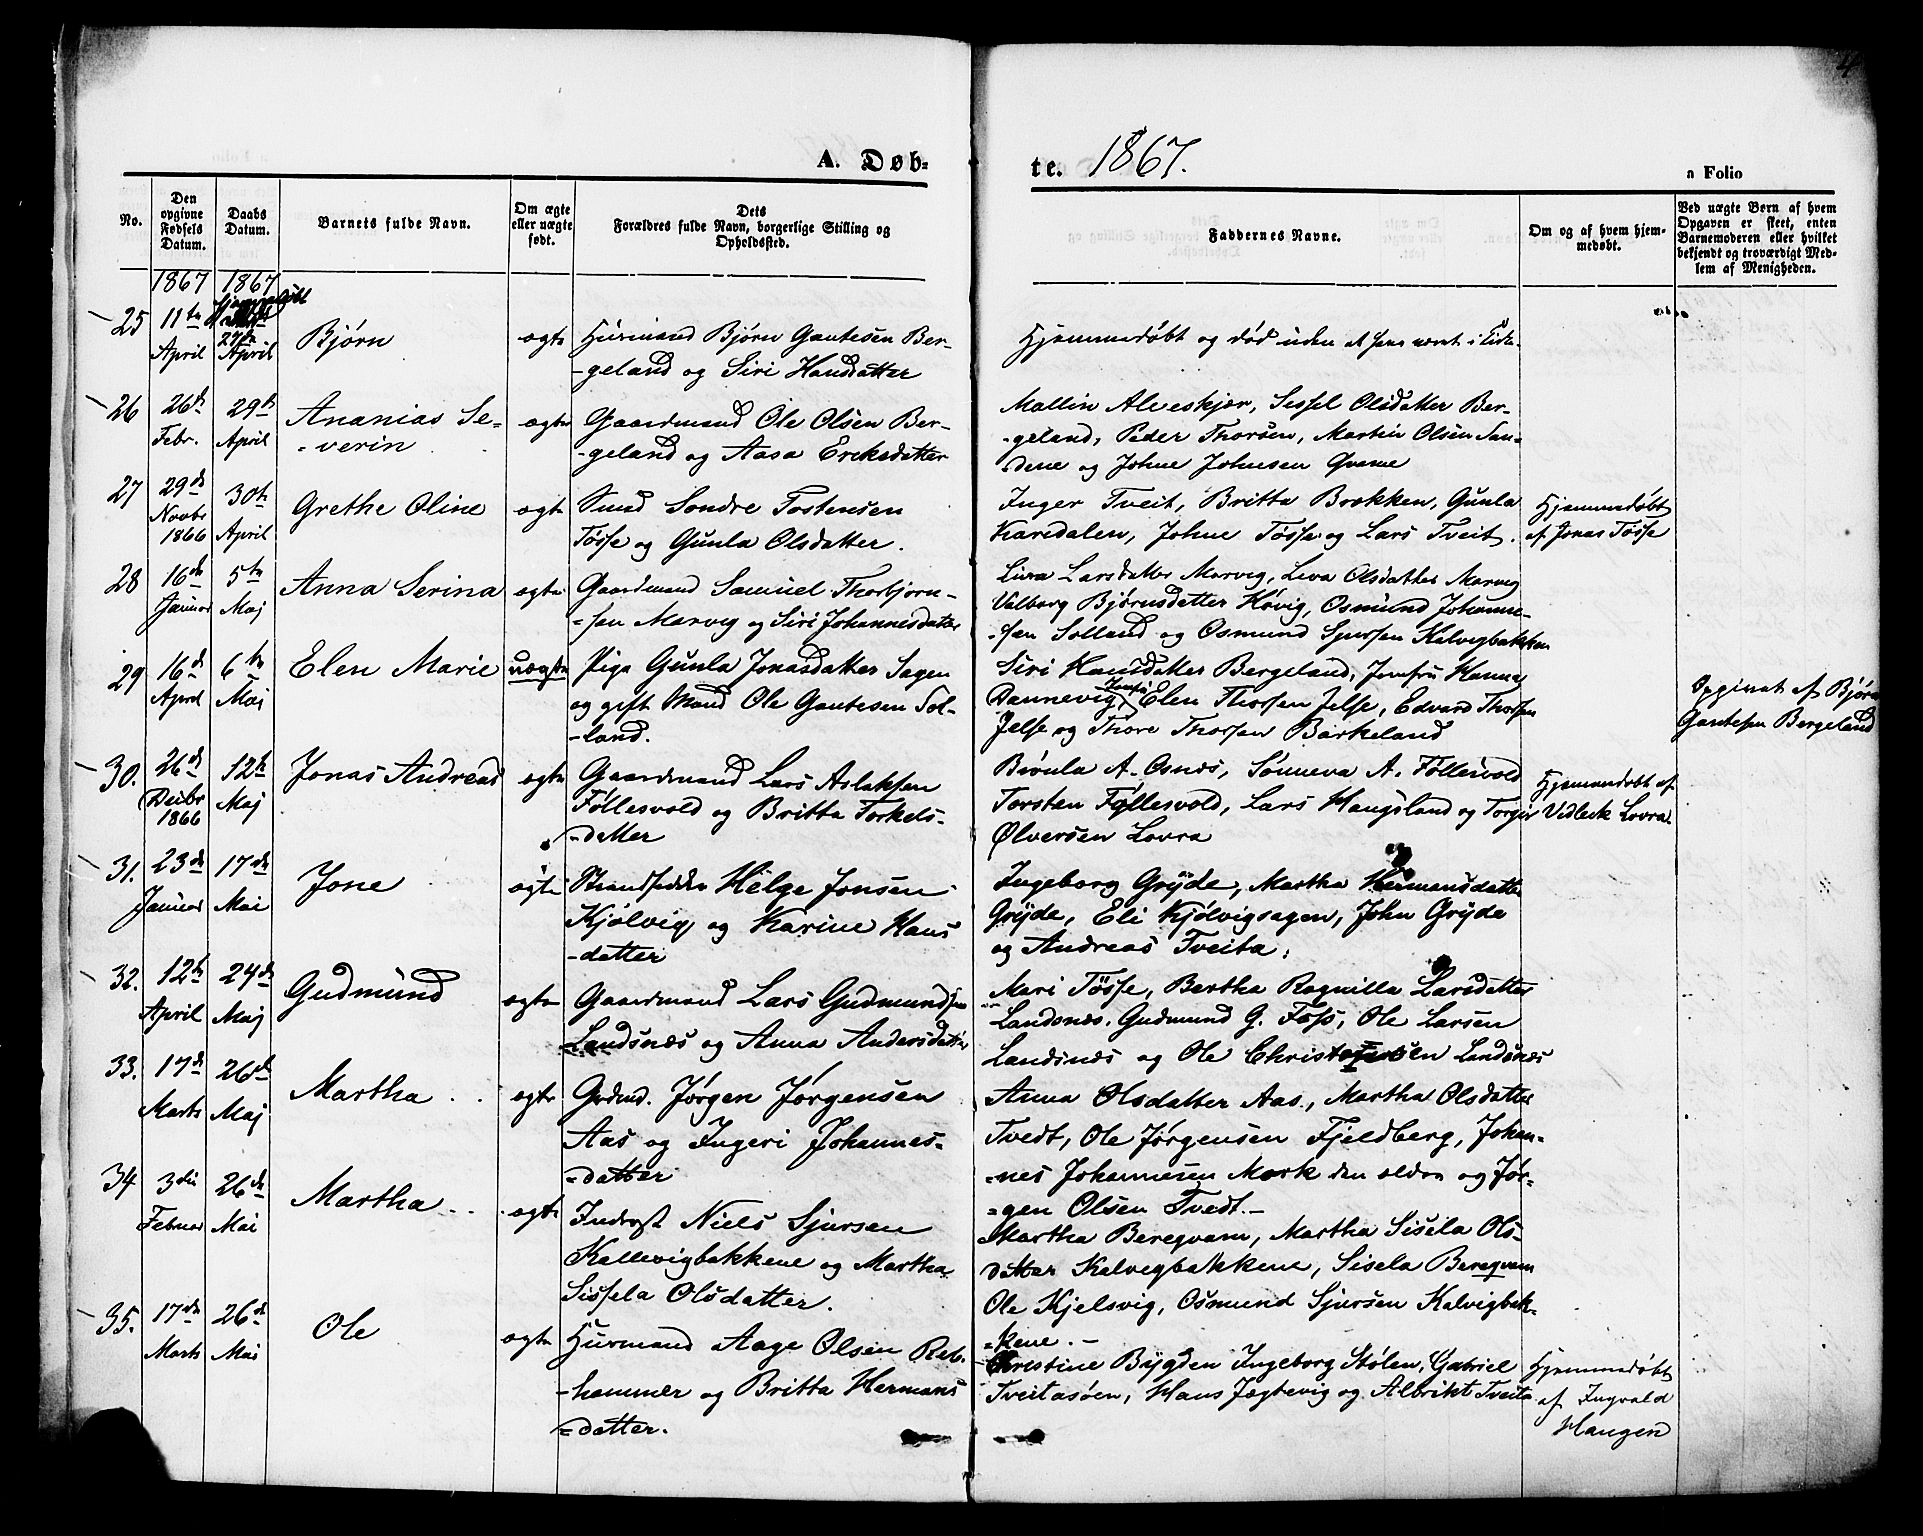 4
A. Døb-
te. 1867.
a Folio
No.
Den opgivne Fødsels Datum.
Daabs Datum.
Barnets fulde Navn.
Om ægte eller uægte født.
Dets Forældres fulde Navn, borgerlige Stilling og Opholdssted.
Faddernes Navne.
Om og af hvem hjemmedøbt.
Ved uægte Børn af hvem Opgaven er skeet, enten Barnemoderen eller hvilket bekjendt og troværdigt Medlem af Menigheden.
1867 1867
25 11te April
27de April
Bjørn
ægte
Huusmand Bjørn Gautesen Ber-
-geland og Siri Hansdatter
Hjemmedøbt og død uden at have været i Kirke.
26 26de Febr.
29de April
Ananias Se-
-verin
ægte
Gaardmand Ole Olsen Ber-
-geland og Aasa Ericksdatter
Mallin Alveskjær, Sissel Olsdatter Ber-
-geland, Peder Thorsen, Martin Olsen San-
-dene og Johne Johnesen Qvame
27 29de Novbr 1866
30te April
Grethe Oline
ægte
Smed Sondre Tostensen
Tøsse og Gunla Olsdatter.
Inger Tveit, Britta Brækken, Gunla
Karidalen, Johne Tøsse og Lars Tveit.
Hjemmedøbt
af Jonas Tøsse
28 16de Januar
5te Maj
Anna Serina
ægte
Gaardmand Samuel Thorbjørn-
-sen Marvig og Siri Johannesdatter
Liva Larsdatter Marvig, Liva Olsdatter Marvig
Valborg Bjørnsdatter Høvig, Osmund Johanne-
-sen Solland og Osmund Sjursen Kalvigbakken
29 16de April
6te Maj
Elen Marie
uægte
Pige Gunla Jonasdatter Sagen
og gift Mand Ole Gautesen Sol-
-land.
Siri Hansdatter Bergeland, Jomfru Hanna
Dannevig, Jomfru Elen Thorsen Jelse, Edvard Thorsen
Jelse og Thore Thorsen Barkeland
Opgivet af Bjørn
Gautesen Bergeland
30. 26de Decbr 1866
12te Maj
Jonas Andreas
ægte
Gaardmand Lars Aslaksen
Føllesvold og Britta Torkels-
-datter
Brynla A. Osnes, Sønneva A. Føllesvold
Torsten Føllesvold, Lars Haugsland og Torger
Ølversen Lovra
Hjemmedøbt af
Vidleik Lovra.
31. 23de Januar
17de Mai
Jone
ægte
Strandsidder Helge Jonsen
Kjølvig og Karine Hans
-datter
Ingeborg Gryde, Martha Hermansdatter
Gryde, Eli Kjølvigsagen, John Gryde
og Andreas Tveita.
32. 12te April
24de Maj
Gudmund
ægte
Gaardmand Lars Gudmundsen
Landsnæs og Anna Andersdatter
Mari Tøsse, Bertha Ragnilla Larsdatter
Landsnæs. Gudmund G. Foss, Ole Larsen
Landsnæs og Ole Christophersen Landsnæs
33. 17de Marts
26de Maj
Martha
ægte
Grdmd. Jørgen Jørgensen
Aas og Ingeri Johannes-
-datter
Anna Olsdatter Aas, Martha Olsdatter
Tvedt, Ole Jørgensen Fjeldberg, Johan-
-nes Johannesen Mork den ældre og Jør-
-gen Olsen Tvedt.-
34 3die Februar
26de Mai
Martha
ægte
Inderst Niels Sjursen
Kallevigbakkene og Martha
Sissela Olsdatter.
Martha Beregvam, Martha Sisela Ols-
datter Kalvegbakkene, Sisela Beregvam
Ole Kjelsvig, Osmund Sjursen Kalvigbak-
-kene.-
35. 17de Marts
26de Mai
Ole
ægte
Huusmand Aage Olsen Reb-
-hammer og Britta Hermans
-datter.
Christine Bygden, Ingeborg Stølen, Gabriel
Tveitasøen, Hans Jægtevig og Albrikt Tveita
Hjemmedøbt
af Ingvald
Haugen